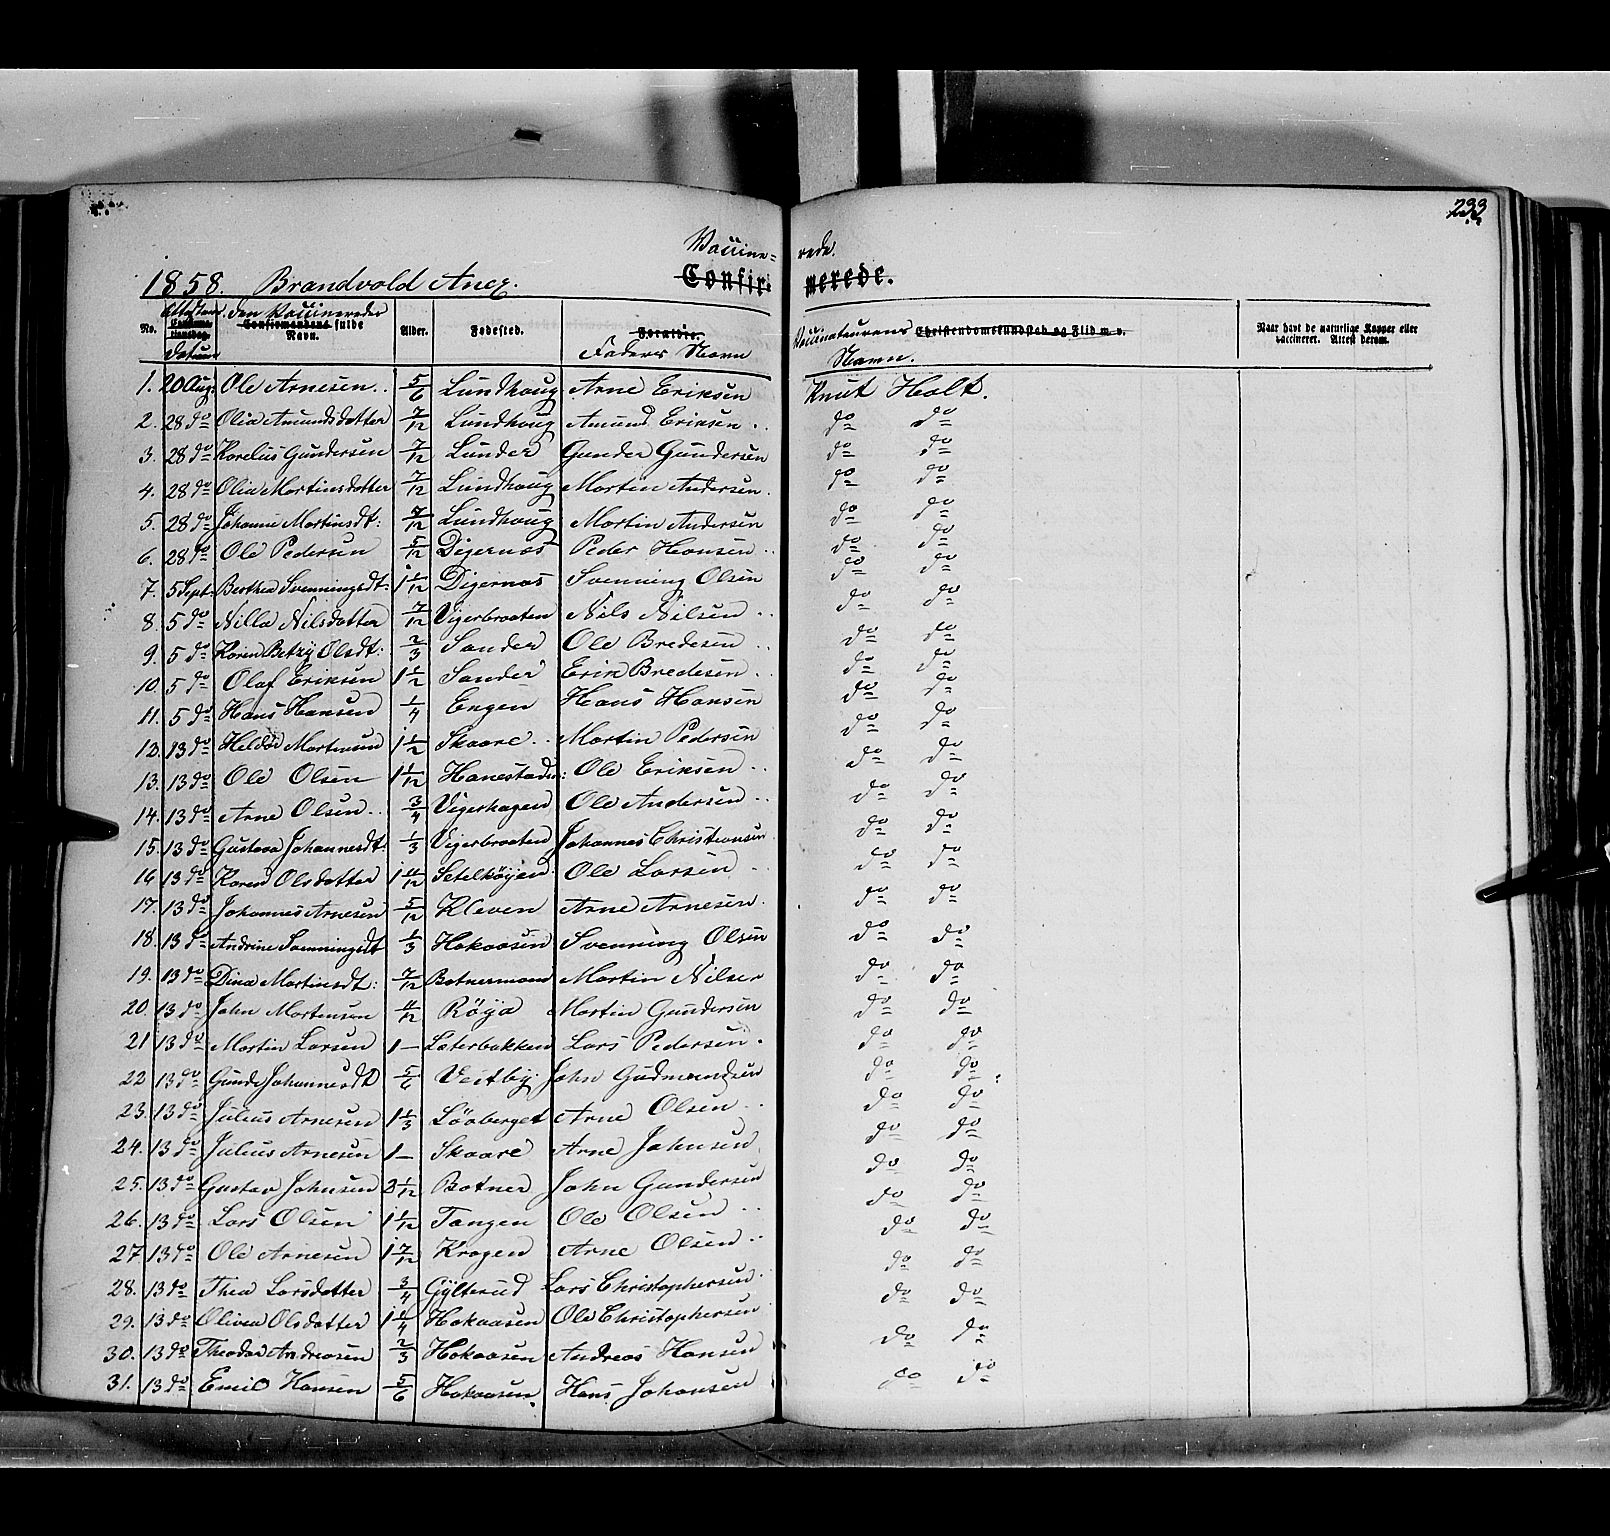 233
Vaccine= rede.
1858. Brandvold Anex. Confir= merede.
No. Attestens Confirma=tionsdag Datum den Vaccineredes Confirmandens fulde Navn. Alder. Fødested. Forældre. Faders Navn Vaccinateurens Navn. Christendomskundskab og Flid m. v. Naar havt de naturlige Kopper eller vaccineret. Attest derom.
1. 20 Aug. Ole Arnesen 5/6 Lundhoug Arne Eriksen Knut Holt.
2. 28 do Olia Amundsdatter 7/12 Lundhoug Amund Eriksen do do
3. 28 do Korelius Gundersen 7/12 Lunder Gunder Gundersen do do
4. 28 do Olia Martinsdatter 7/12 Lundhoug Martin Andersen do do
5. 28 do Johanne Martinsdt: 7/12 Lundhoug Martin Andersen do do
6. 28 do Ole Pedersen 5/12 Digernæs Peder Hansen do do
7. 5 Sept. Berthea Svenningsdt: 1 1/12 Digernæs Svenning Olsen do do
8. 5 do Nilla Nilsdatter 7/12 Vigerbraaten Nils Nilsen do do
9. 5 do Karen Betzy Olsdt: 2/3 Sander Ole Bredesen do do
10. 5 do Olaf Eriksen 1 1/2 Sander Erik Bredesen do do
11. 5 do Hans Hansen 1/4 Engen Hans Hansen do do
12. 13 do Martinsen 1 1/2 Skaare Martin Pedersen do do
13. 13 do Ole Olsen 1 1/12 Hanestads: Ole Eriksen do do
14. 13 do Arne Olsen 3/4 Vigerhagen Ole Andersen do do
15. 13 do Gustava Johannesdt: 1/3 Vigerbraaten Johannes Christiansen do do
16 13 do Karen Olsdatter 1 11/12 Setelhøgen Ole Larsen do do
17. 13 do Johannes Arnesen 5/12 Kleven Arne Arnesen do do
18. 13 do Andrine Svenningsdt 1/3 Hokaasen Svenning Olsen do do
19. 13 do Dina Martinsdt: 7/12 Botnermoen Martin Nilsen do do
20. 13 do John Martinsen 11/12 Röga Martin Gundersen do do
21 13 do Martin Larsen 1 — Læterbakken Lars Pedersen do do
22 13 do Gunde Johannesdt 5/6 Veitby John Gudmundsen do do
23. 13 do Julius Arnesen 1 1/3 Löaberget Arne Olsen do do
24. 13 do Julius Arnesen 1 — Skaare Arne Johnsen do do
25. 13 do Gustav Johnsen 2 1/12 Botner John Gundersen do do
26. 13 do Lars Olsen 1 1/12 Tangen Ole Olsen do do
27 13 do Ole Arnesen 1 7/12 Krogen Arne Olsen do do
28. 13 do Thea Larsdatter 3/4 Gylterud Lars Christophersen do do
29. 13 do Olivea Olsdatter 1 1/4 Hokaasen Ole Christophersen do do
30. 13 do Theodor Andreasen 2/3 Hokaasen Andreas Hansen do do
31. 13 do Emil Hansen 5/6 Hokaasen Hans Johansen do do